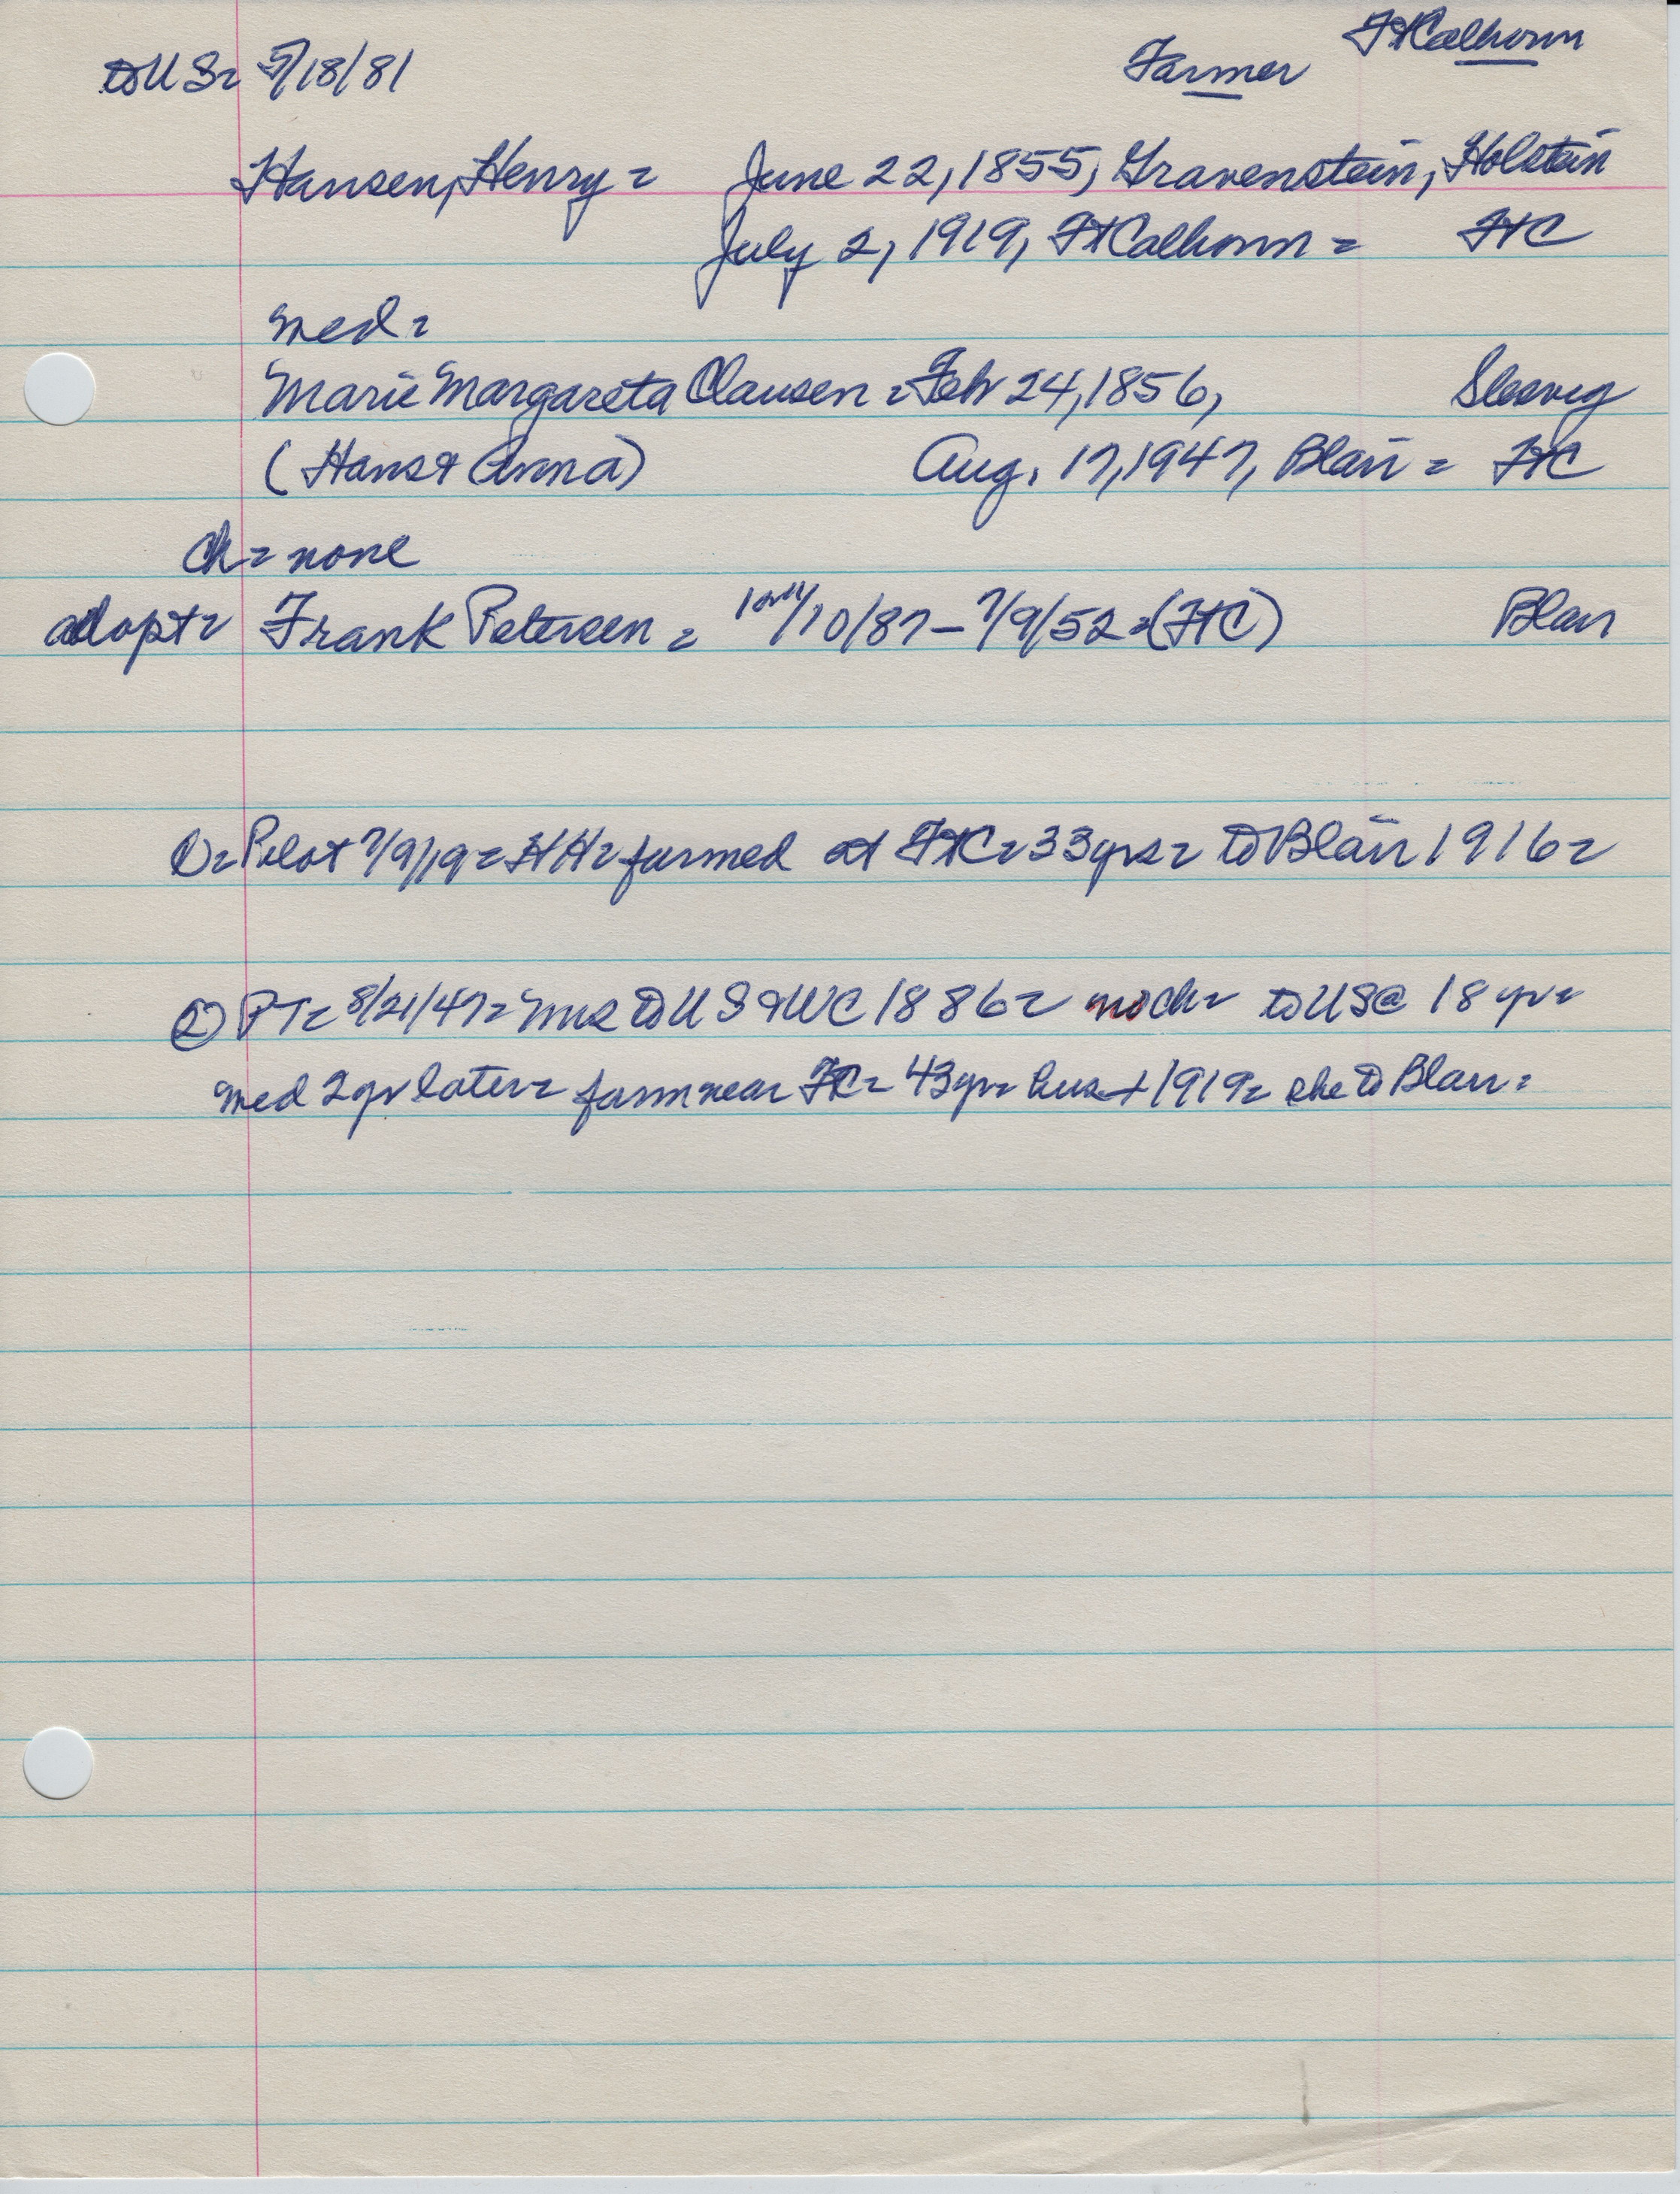 Ft Calhoun
to US= 5/18/81 Farmer
Hansen, Henry = June 22, 1855, Gravenstein, Holstein
July 2, 1919, Ft Calhoun = FtC
med=
Marie Margareta Clausen = Feb 24, 1856, Slesvig
(Hans & Anna) Aug. 17, 1947, Blair = FtC
Ch= none
adopt= Frank Petersen = /10/87 – 7/9/52 = (FtC) Blair
①= Pilot 7/9/19 = HH= farmed at FtC= 33yrs= to Blair 1916=
② PT= 8/21/47= mrs to US & WC 1886= no ch= to US @ 18 yr=
med 2yr later= farm near FC= 43yr= hus + 1919= she to Blair=